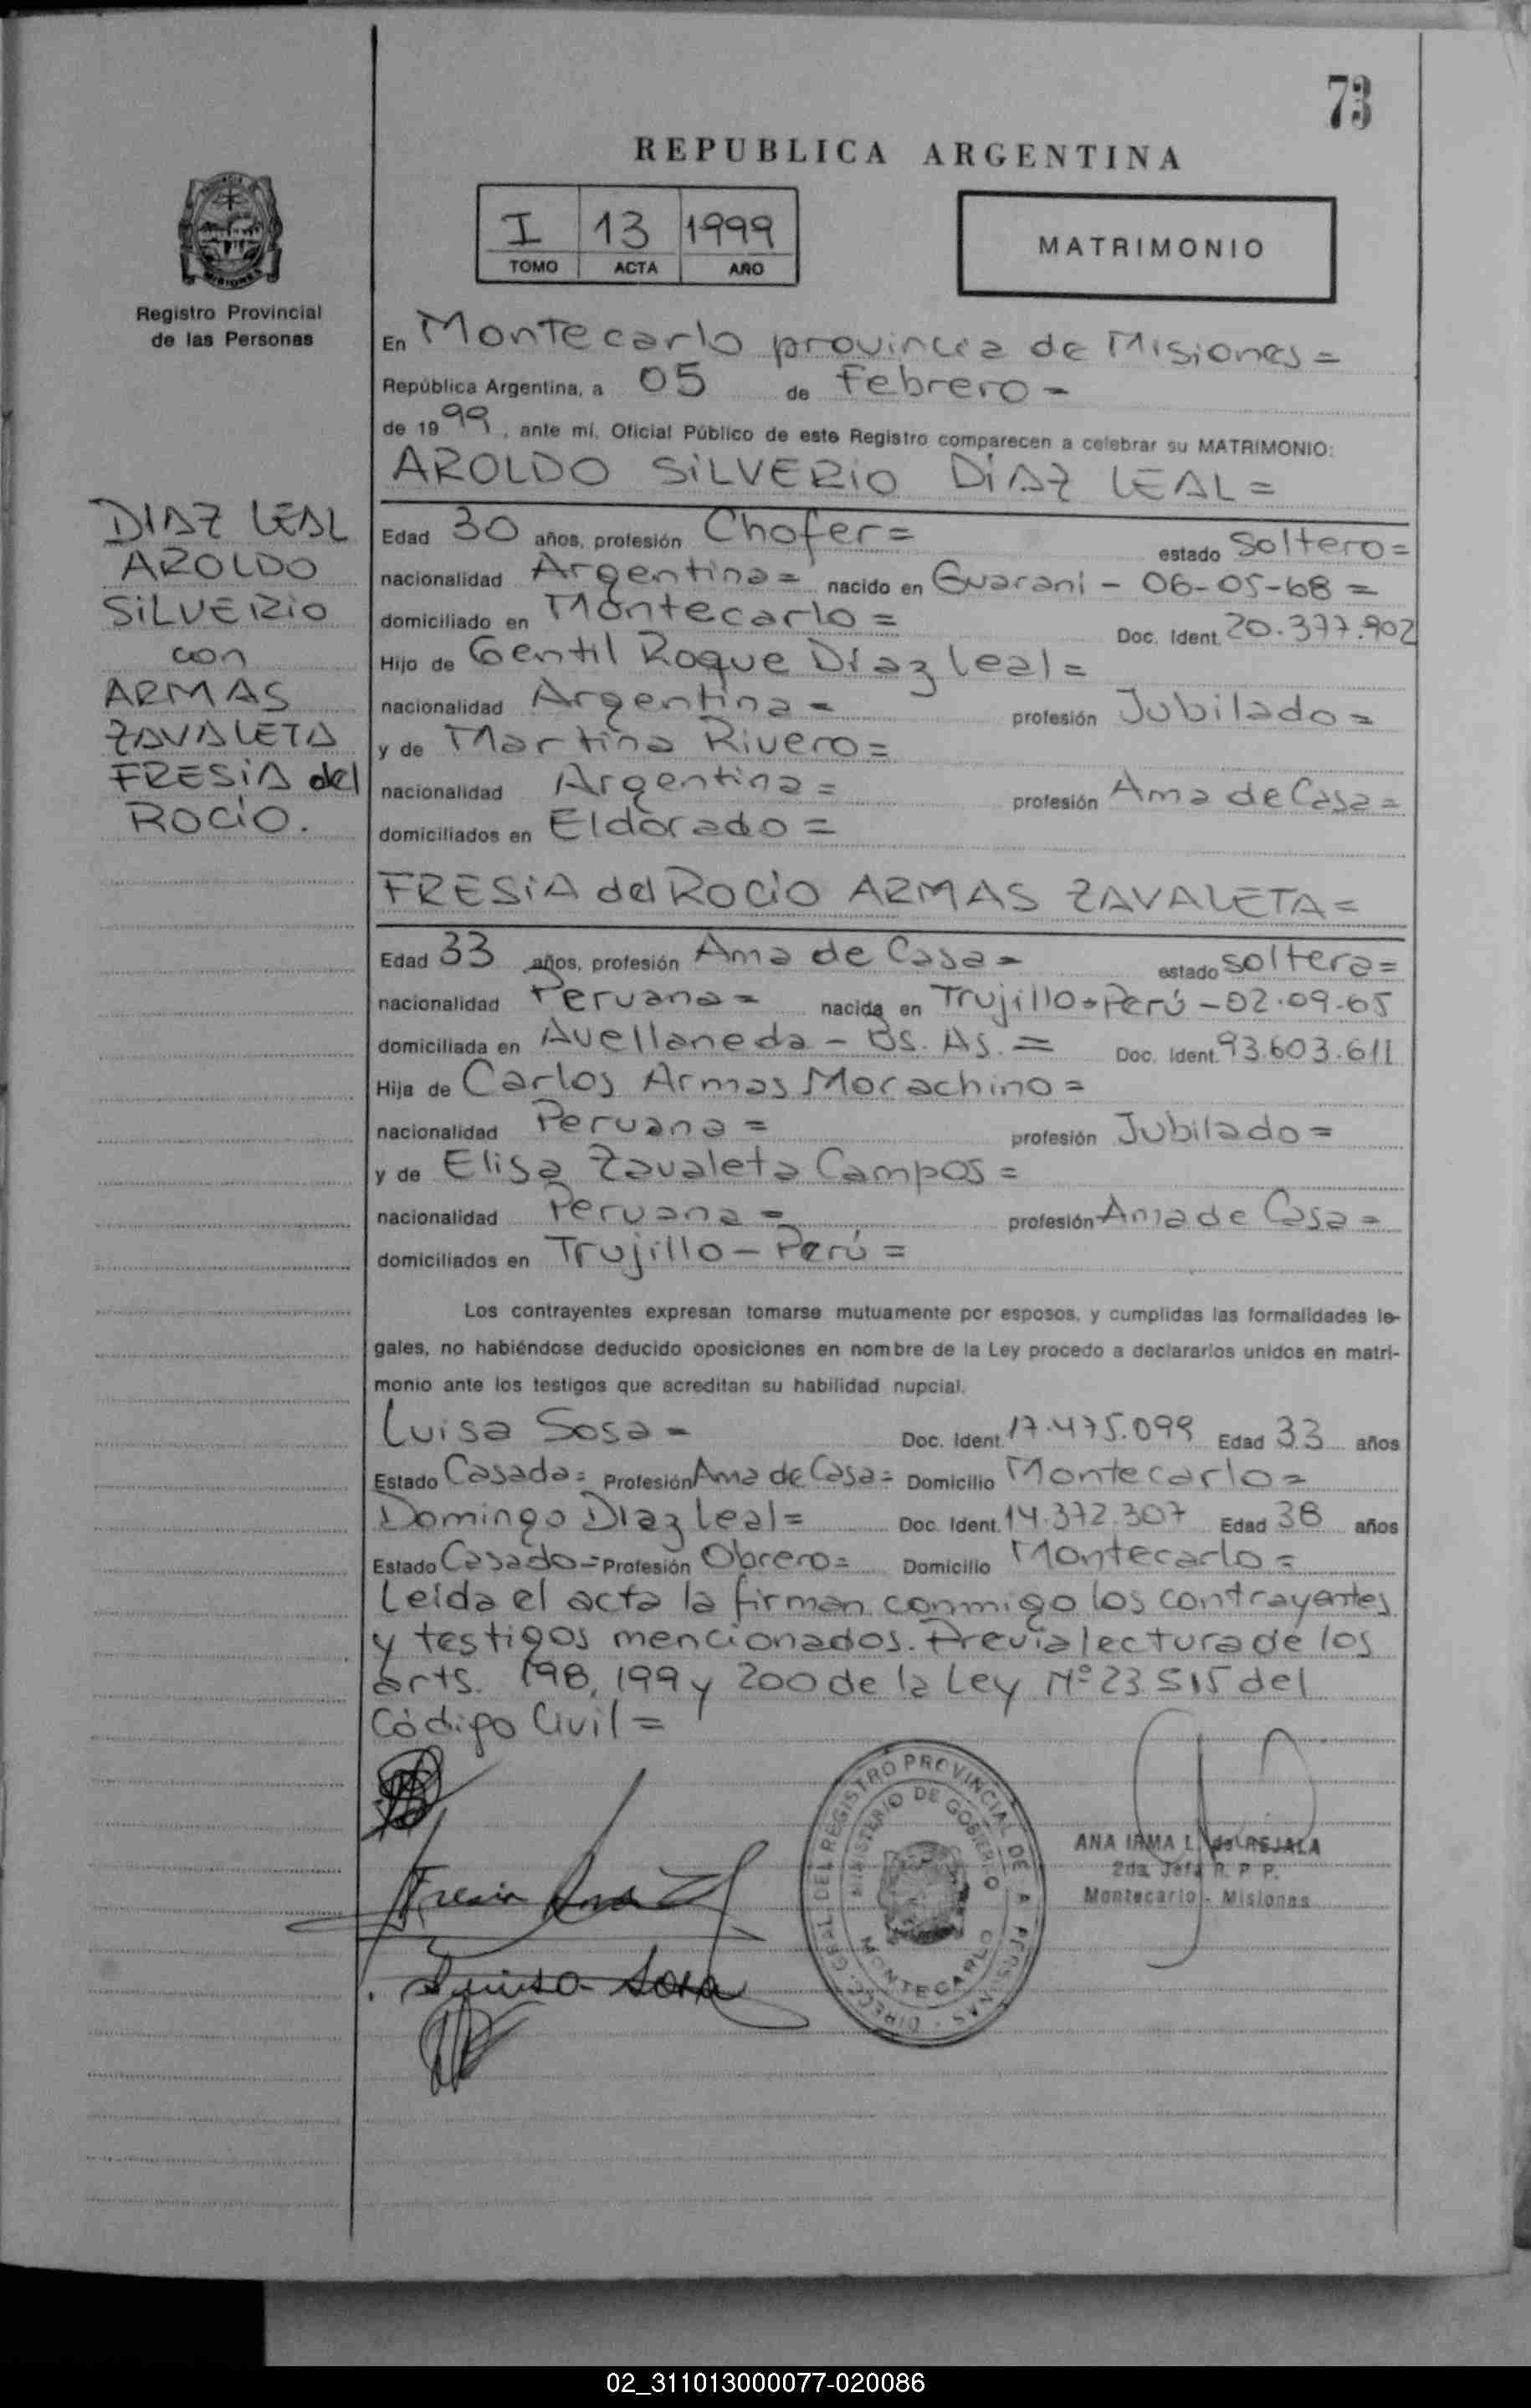 73
REPUBLICA ARGENTINA
I 13 1999
TOMO ACTA AÑO
MATRIMONIO
Registro Provincial
de las Personas
En Montecarlo provincia de Misiones =
República Argentina, a 05 de Febrero =
de 1999, ante mí, Oficial Público de este Registro comparecen a celebrar su MATRIMONIO:
AROLDO SILVERIO DÍAZ LEAL =
DIAZ LEAL
AROLDO
SILVERIO
con
ARMAS
ZAVALETA
FRESIA del
ROCÍO.
Edad 30 años, profesión Chofer = estado Soltero =
nacionalidad Argentina = nacido en Guaraní - 06-05-68 =
domiciliado en Montecarlo = Doc. Ident. 20.377.902
Hijo de Gentil Roque Díaz Leal =
nacionalidad Argentina = profesión Jubilado =
y de Martina Rivero =
nacionalidad Argentina = profesión Ama de Casa =
domiciliados en Eldorado =
FRESIA del ROCÍO ARMAS ZAVALETA =
Edad 33 años, profesión Ama de Casa = estado Soltera =
nacionalidad Peruana = nacida en Trujillo - Perú - 02.09.65
domiciliada en Avellaneda - Bs. As. = Doc. Ident. 93.603.611
Hija de Carlos Armas Morachino =
nacionalidad Peruana = profesión Jubilado =
y de Elisa Zavaleta Campos =
nacionalidad Peruana = profesión Ama de Casa =
domiciliados en Trujillo - Perú =
Los contrayentes expresan tomarse mutuamente por esposos, y cumplidas las formalidades le-
gales, no habiéndose deducido oposiciones en nombre de la Ley procedo a declararlos unidos en matri-
monio ante los testigos que acreditan su habilidad nupcial.
Luisa Sosa = Doc. Ident. 17.475.099 Edad 33 años
Estado Casada = Profesión Ama de Casa = Domicilio Montecarlo =
Domingo Diaz Leal = Doc. Ident. 14.372.307 Edad 38 años
Estado Casado = Profesión Obrero = Domicilio Montecarlo =
Leída el acta la firman conmigo los contrayentes
y testigos mencionados. Previa lectura de los
arts. 198, 199 y 200 de la Ley Nº 23.515 del
Código Civil =
MINISTERIO DE GOBIERNO
MONTECARLO
ANA IRMA L. de REJALA
2da. Jefa R. P. P.
Montecarlo - Misiones
Luisa Sosa
02_311013000077-020086